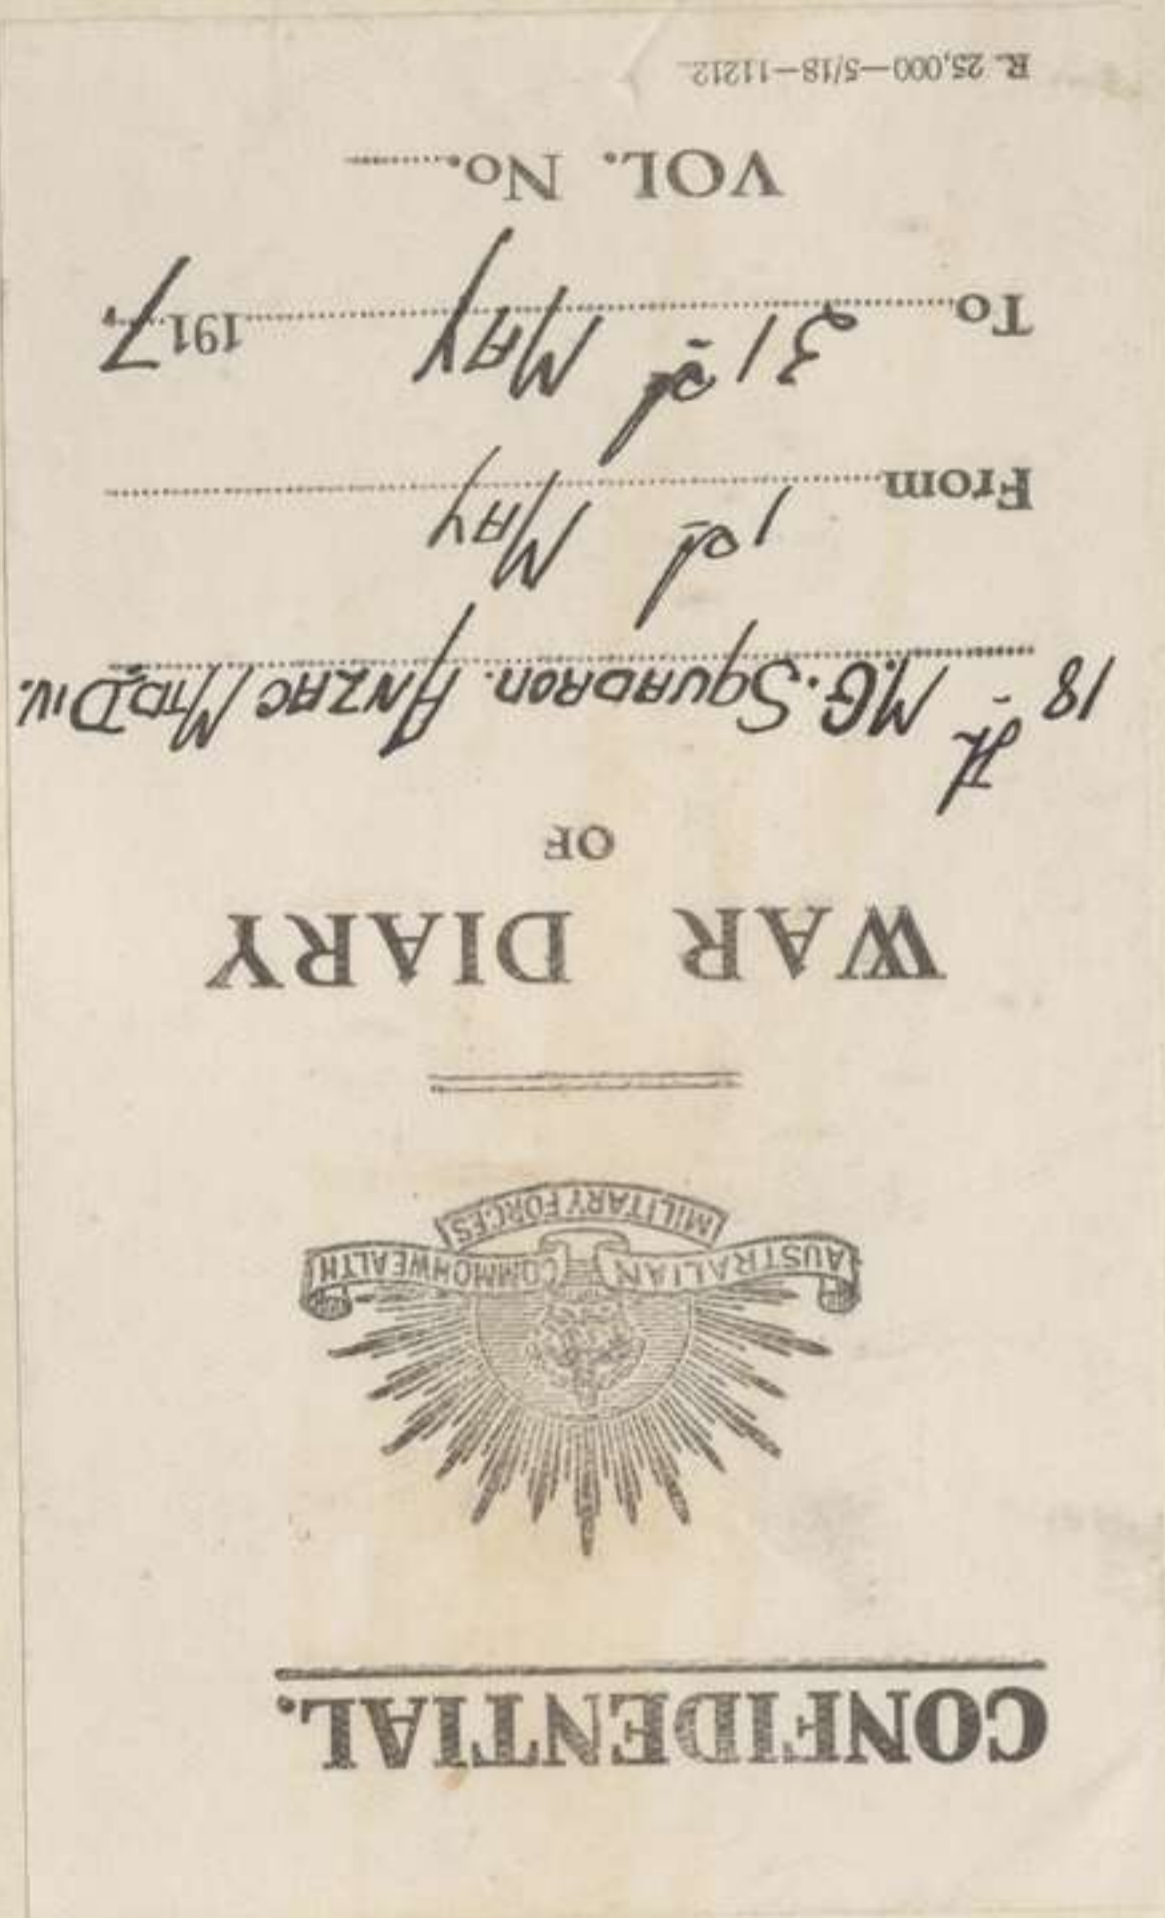 CONFIDENTIAL.
AUSTRALIAN COMMONWEALTH
MILITARY FORCES
WAR DIARY
OF
18th M.G. SQUADRON. ANZAC MTD. DIV.
From 1st MAY
To 31st MAY 1917.
VOL. No.
R. 25,000—5/18—11212.